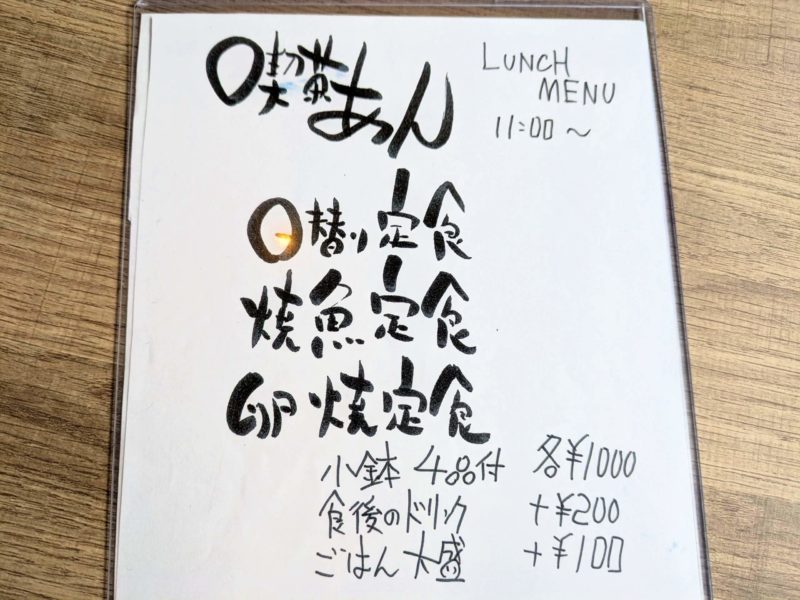 喫茶あん
LUNCH
MENU
11:00～
日替り定食
焼魚定食
卵焼定食
小鉢 4品付 各¥1000
食後のドリンク +¥200
ごはん大盛 +¥100